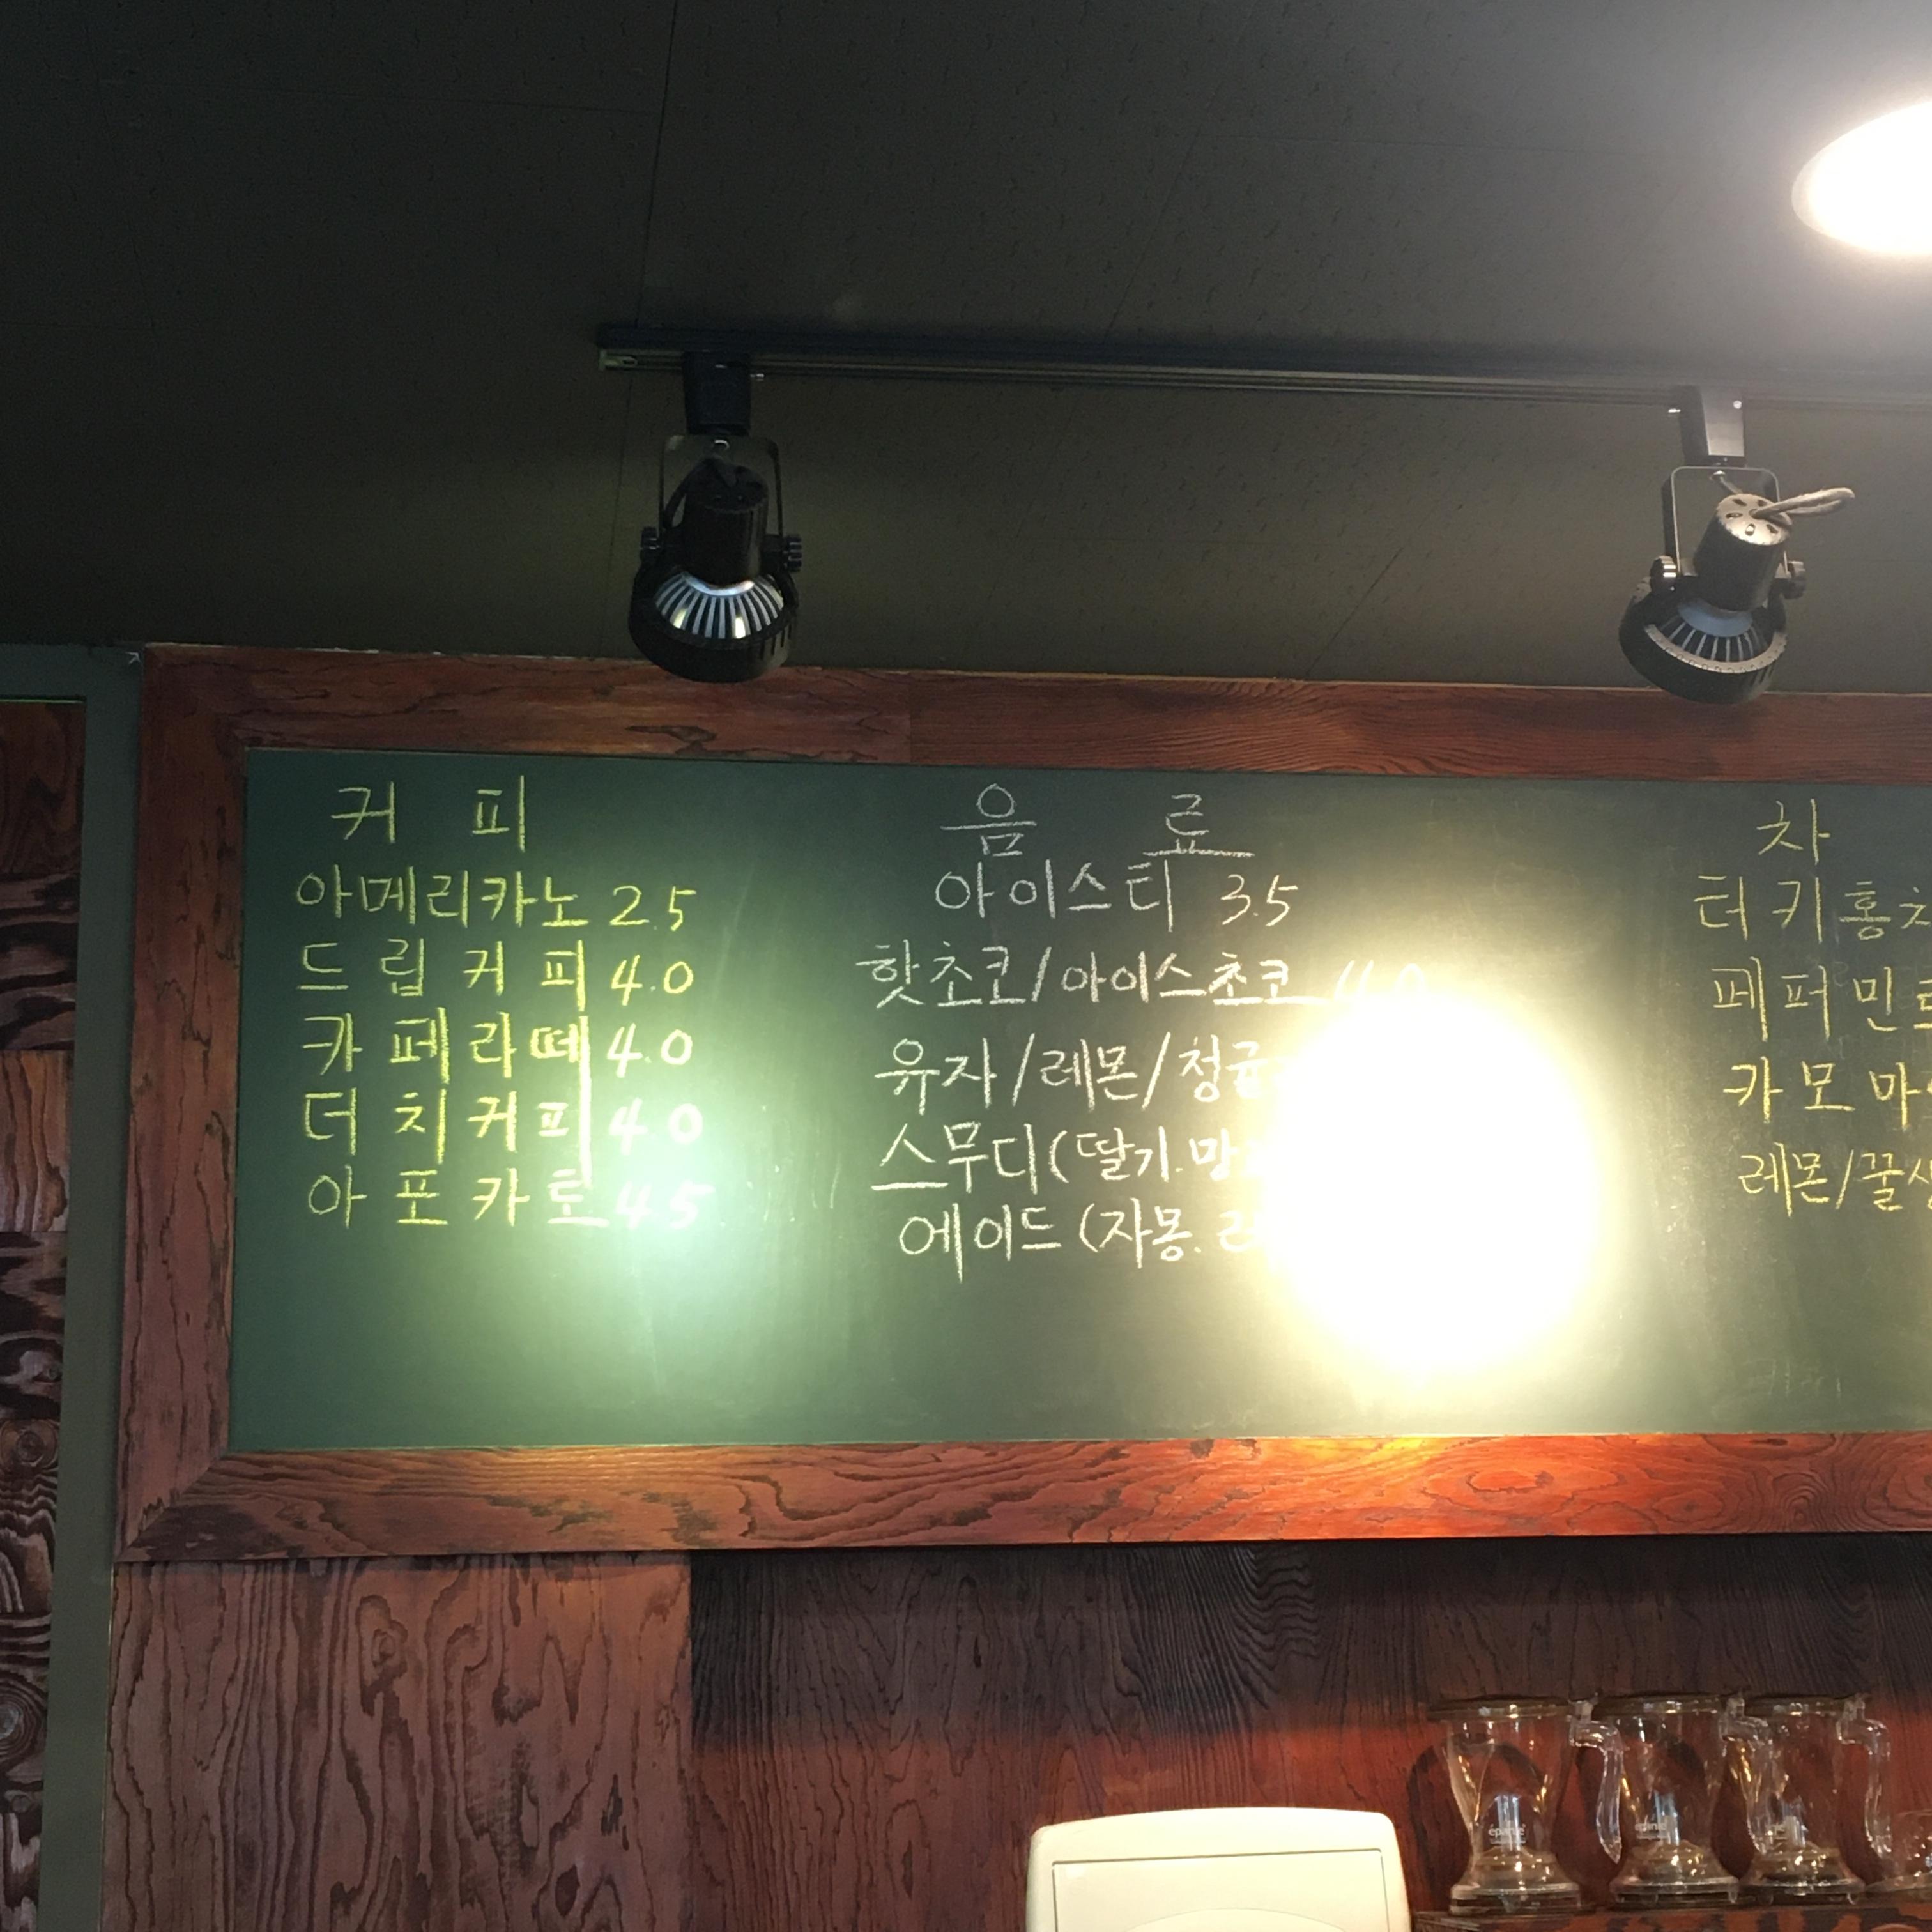 커 피
아메리카노 2.5
드립커피 4.0
카페라떼 4.0
더치커피 4.0
아포카토 4.5
음 료
아이스티 3.5
핫초코/아이스초코 4.0
유자/레몬/청귤
스무디(딸기.망
에이드(자몽.
차
터키홍차
페퍼민
카모마
레몬/꿀생
épanie